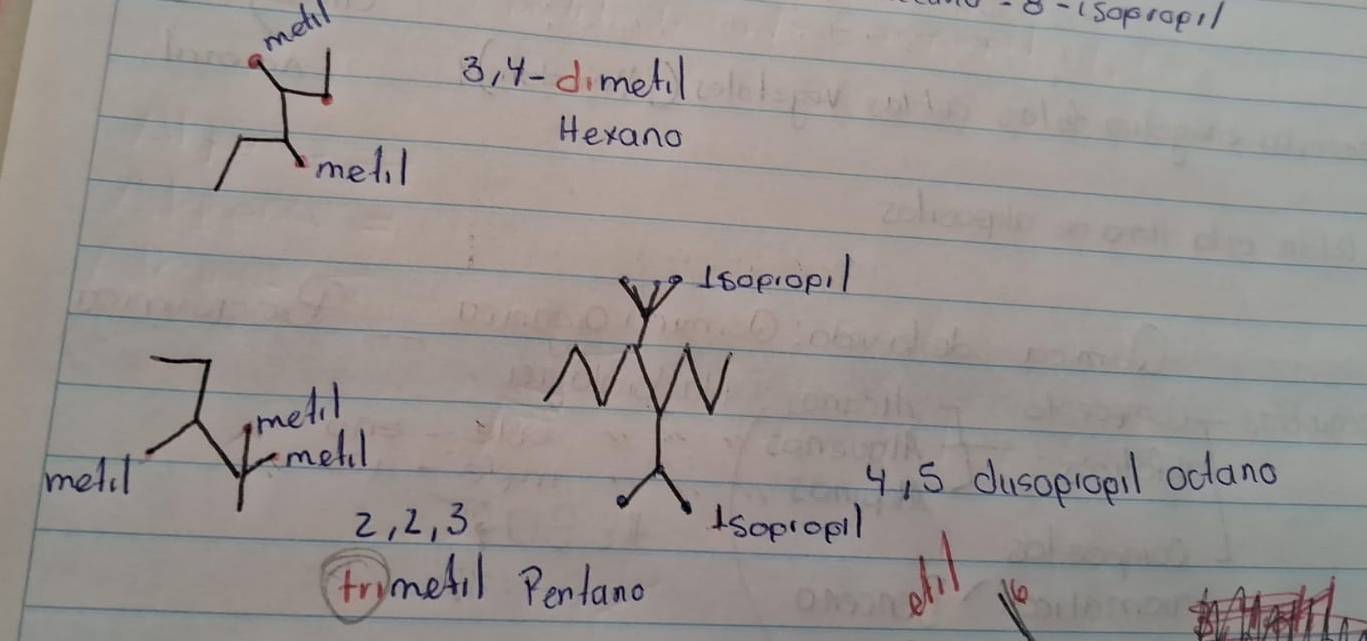 - 8 - isopropil
metil
3,4-dimetil
Hexano
metil
Isopropil
metil
metil
metil
4,5 diisopropil octano
2,2,3
Isopropil
trimetil Pentano
etil